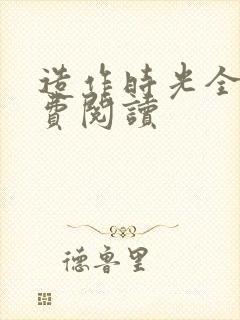 造作時光全
費閱讀
德魯里